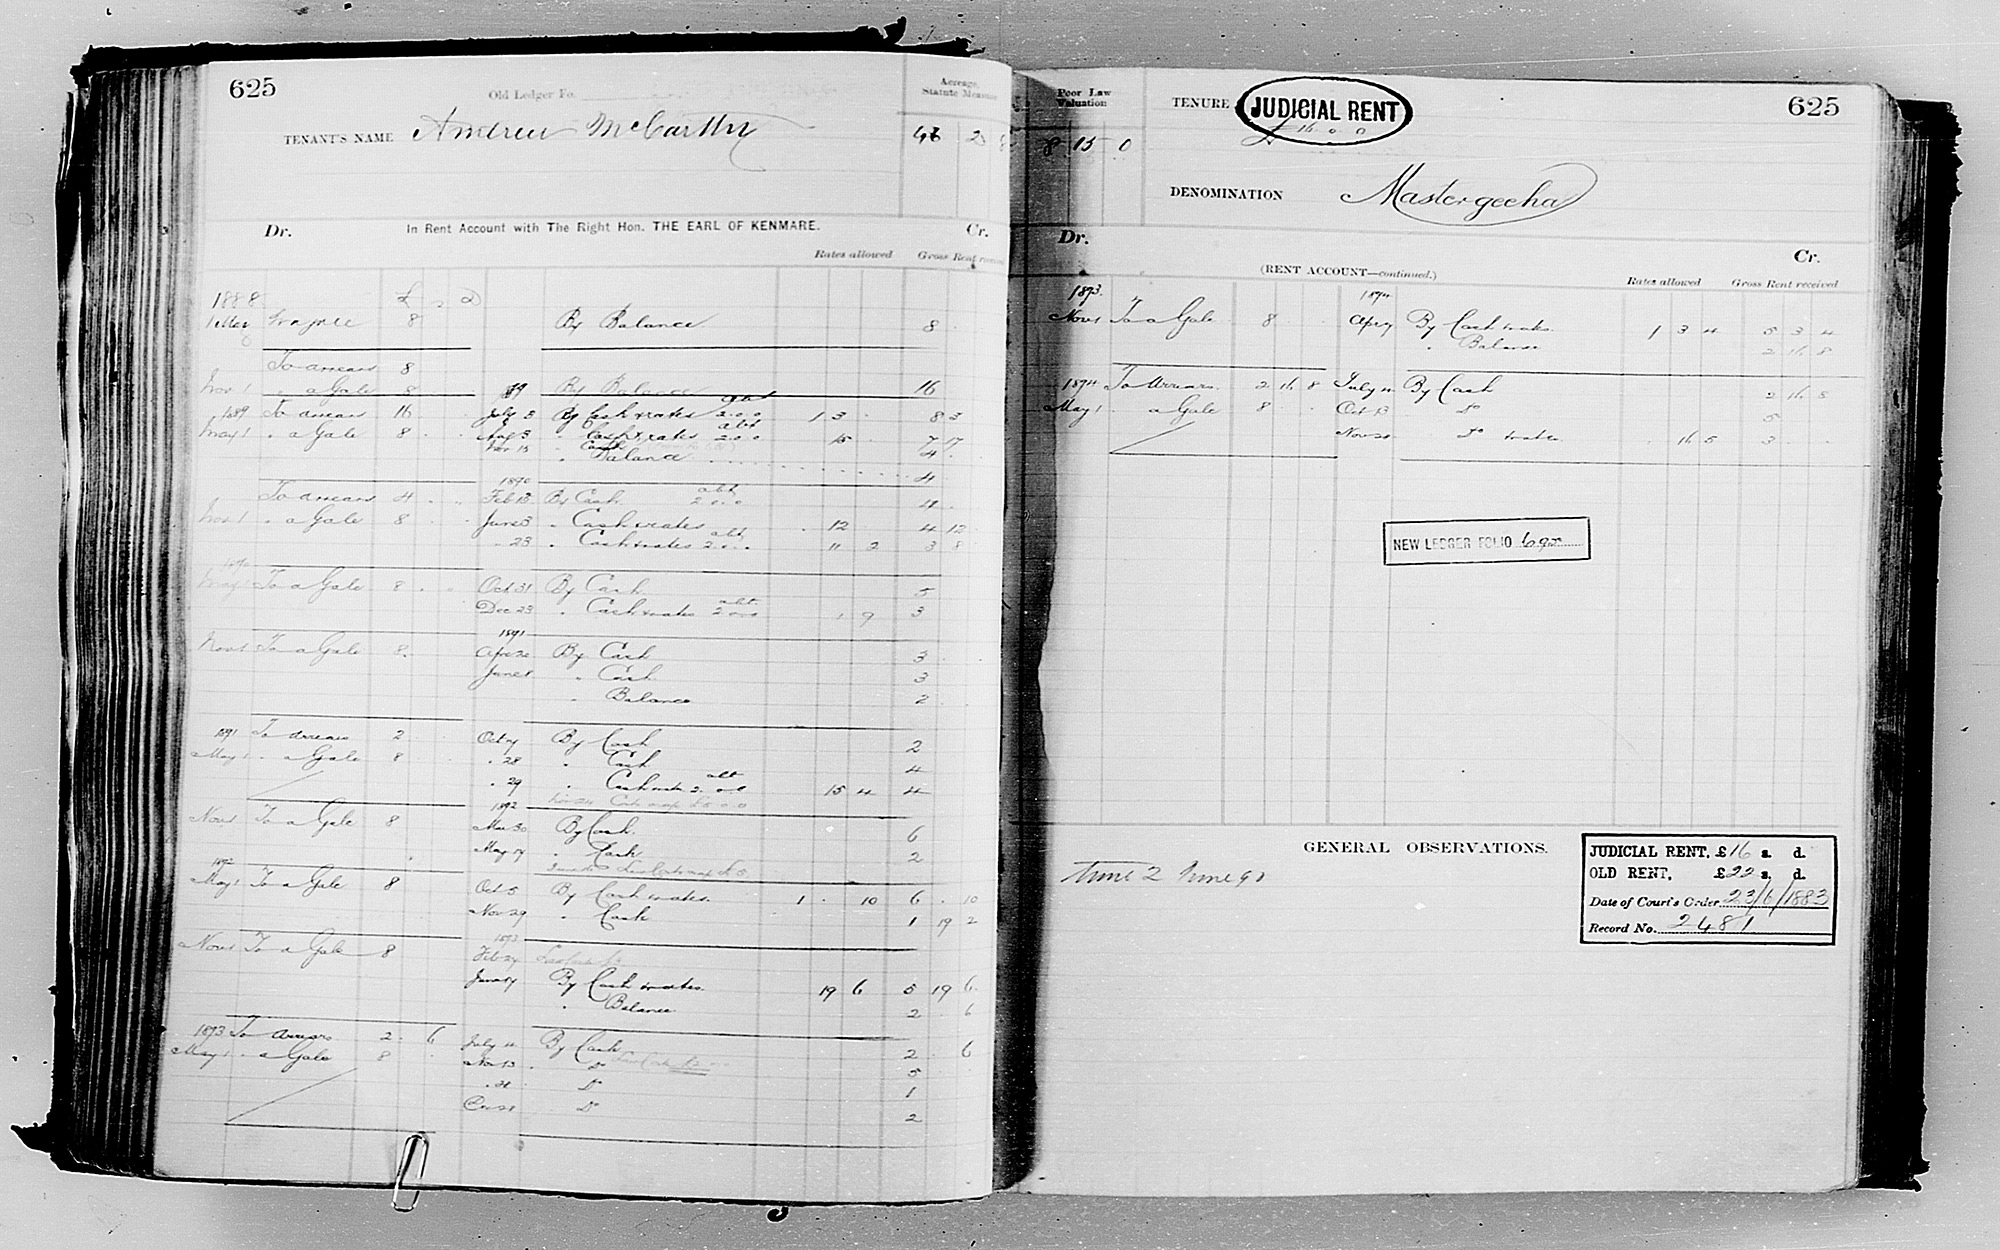 625
Old Ledger Fo.
Acreage, Statute Measure
TENANT'S NAME Andrew McCarthy
Dr. In Rent Account with The Right Hon. THE EARL OF KENMARE. Cr.
Rates allowed Gross Rent
1888 £ s D
1 May 8 By Balance 8
To arrears 8
Nov 1 " a Gale 8 89 By Balance 16
1889 To arrears 16 July 3 By Cash & rates abt 2.0.0 1 3 8 3
May 1 " a Gale 8 Aug 3 " Cash & rates abt 2.0.0 15 7 17
Nov 15 Cash 4
" Balance 4
1890
To arrears 4 Feb 13 By Cash abt 2.0.0 4
Nov 1 " a Gale 8 June 3 " Cash & rates 12 4 12
" 23 " Cash & rates abt 2.0.0 11 2 3 8
1890
May 1 To a Gale 8 Oct 31 By Cash 5
Dec 23 " Cash & rates abt 2.0.0 1 9 3
1891
Nov 1 To a Gale 8 Apr 20 By Cash 3
June " Cash 3
" Balance 2
1891 To arrears 2 Oct By Cash 2
May 1 " a Gale 8 " 28 " Cash 4
" 29 " Cash rates abt 2.0.0 15 4 4
1892
Nov 1 To a Gale 8 Mar 30 By Cash 6
May 14 " Cash 2
1892
May 1 To a Gale 8 Oct 5 By Cash & rates 1 . 10 6 . 10
Nov 29 " Cash 1 19 2
1893
Nov 1 To a Gale 8 Feb 24
June By Cash & rates 19 6 5 19 6
" Balance 2 . 6
1893 To Arrears 2 . 6 July 11 By Cash 2 . 6
May 1 " a Gale 8 Nov 13 " Do 5
" Do 1
Do 2
Poor Law Valuation
8 15 0
TENURE JUDICIAL RENT 625
£16 0 0
DENOMINATION Mastergeeha
Dr. (RENT ACCOUNT—continued.) Cr.
Rates allowed Gross Rent received
1893 1894
Nov 1 To a Gale 8 Apr By Cash & rates 1 3 4 5 3 4
" Balance 2 16 8
1894 To Arrears 2 16 8 July 11 By Cash 2 16 8
May 1 a Gale 8 Oct 13 Do 5
Nov 20 Do & rates 16 5 3
NEW LEDGER FOLIO
GENERAL OBSERVATIONS.
JUDICIAL RENT, £16 s. d.
OLD RENT, £22 s. d.
Date of Court's Order 23/6/1883
Record No. 2481